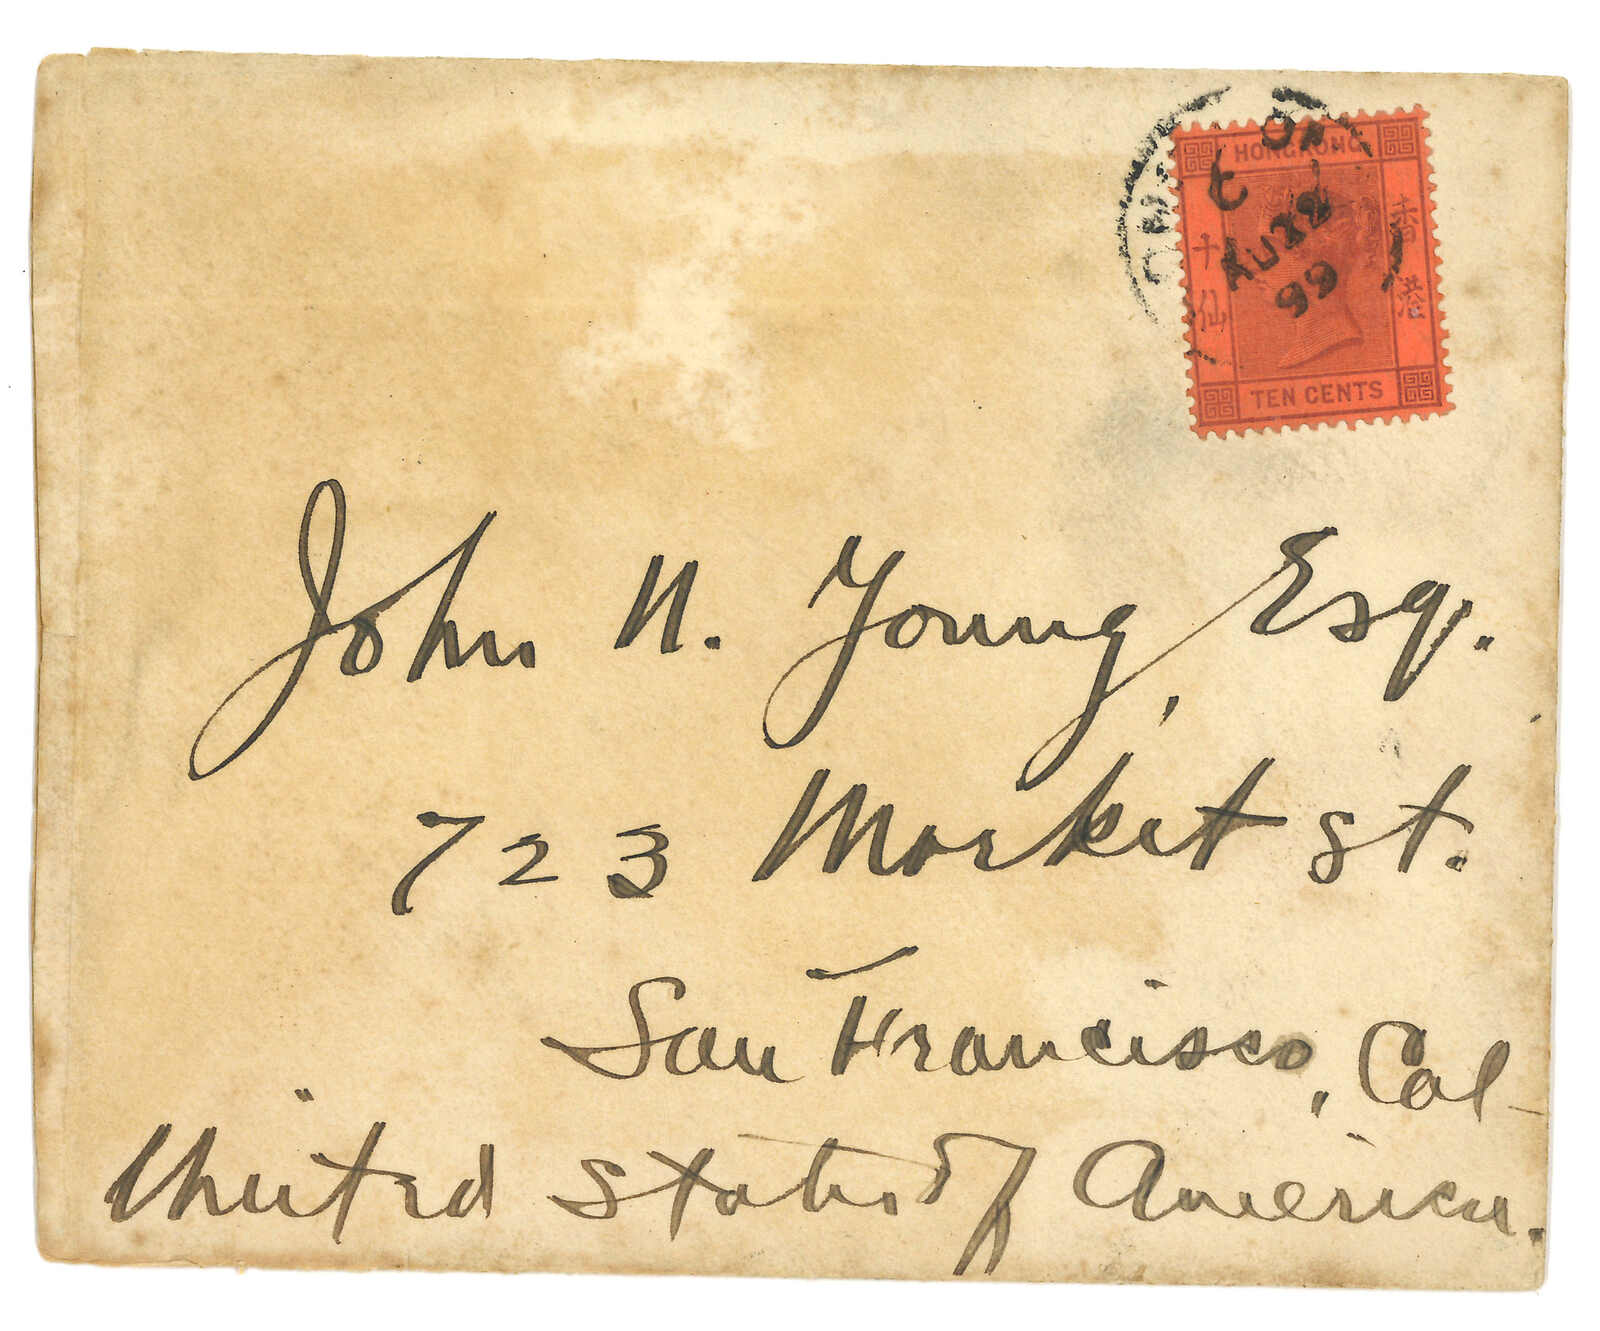 HONG KONG
香港
十仙
TEN CENTS
AU 22
99
John N. Young, Esq.
723 Market St.
San Francisco, Cal-
United States of America.